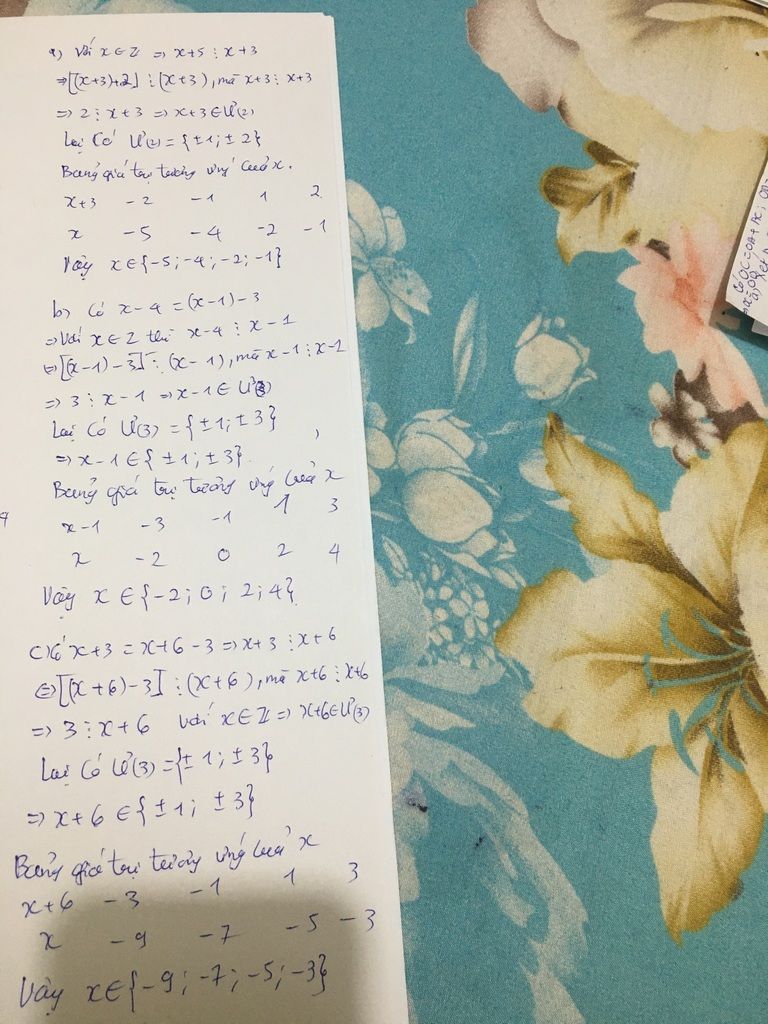 a) Với x ∈ Z ⇒ x+5 ⋮ x+3
⇒ [(x+3)+2] ⋮ (x+3), mà x+3 ⋮ x+3
⇒ 2 ⋮ x+3 ⇒ x+3 ∈ Ư(2)
Lại có Ư(2) = {±1; ±2}
Bảng giá trị tương ứng của x.
x+3 -2 -1 1 2
x -5 -4 -2 -1
Vậy x ∈ {-5; -4; -2; -1}
b) Có x-4 = (x-1)-3
⇒ Với x ∈ Z thì x-4 ⋮ x-1
⇔ [(x-1)-3] ⋮ (x-1), mà x-1 ⋮ x-1
⇒ 3 ⋮ x-1 ⇒ x-1 ∈ Ư(3)
Lại có Ư(3) = {±1; ±3}
⇒ x-1 ∈ {±1; ±3}
Bảng giá trị tương ứng của x
x-1 -3 -1 1 3
x -2 0 2 4
Vậy x ∈ {-2; 0; 2; 4}
c) Có x+3 = x+6-3 ⇒ x+3 ⋮ x+6
⇔ [(x+6)-3] ⋮ (x+6), mà x+6 ⋮ x+6
⇒ 3 ⋮ x+6 với x ∈ Z ⇒ x+6 ∈ Ư(3)
Lại có Ư(3) = {±1; ±3}
⇒ x+6 ∈ {±1; ±3}
Bảng giá trị tương ứng của x
x+6 -3 -1 1 3
x -9 -7 -5 -3
Vậy x ∈ {-9; -7; -5; -3}
Có OC = OA + AC;